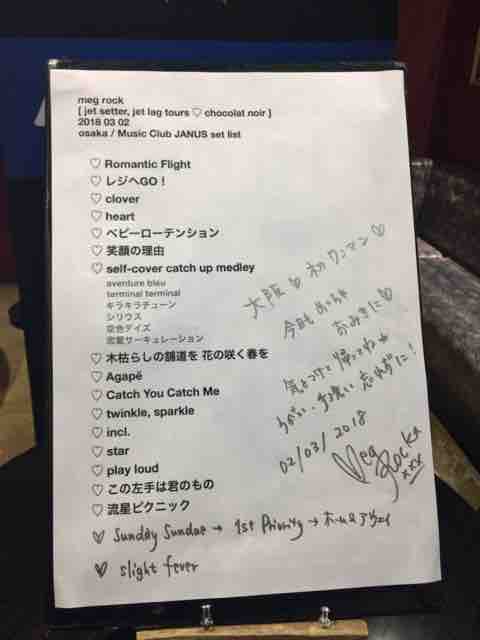 meg rock
[ jet setter, jet lag tours ♡ chocolat noir ]
2018 03 02
osaka / Music Club JANUS set list
♡ Romantic Flight
♡ レジへGO！
♡ clover
♡ heart
♡ ベビーローテンション
♡ 笑顔の理由
♡ self-cover catch up medley
aventure bleu
terminal terminal
キラキラチューン
シリウス
空色デイズ
恋愛サーキュレーション
♡ 木枯らしの舗道を 花の咲く春を
♡ Agapē
♡ Catch You Catch Me
♡ twinkle, sparkle
♡ incl.
♡ star
♡ play loud
♡ この左手は君のもの
♡ 流星ピクニック
♡ Sunday Sundae → 1st Priority → ホーム&アウェイ
♡ slight fever
大阪 初ワンマン♡
今日
おおきに♡
気をつけて帰ってね
うがい・手洗い 忘れずに！
02/03/2018
Meg Rock xxx